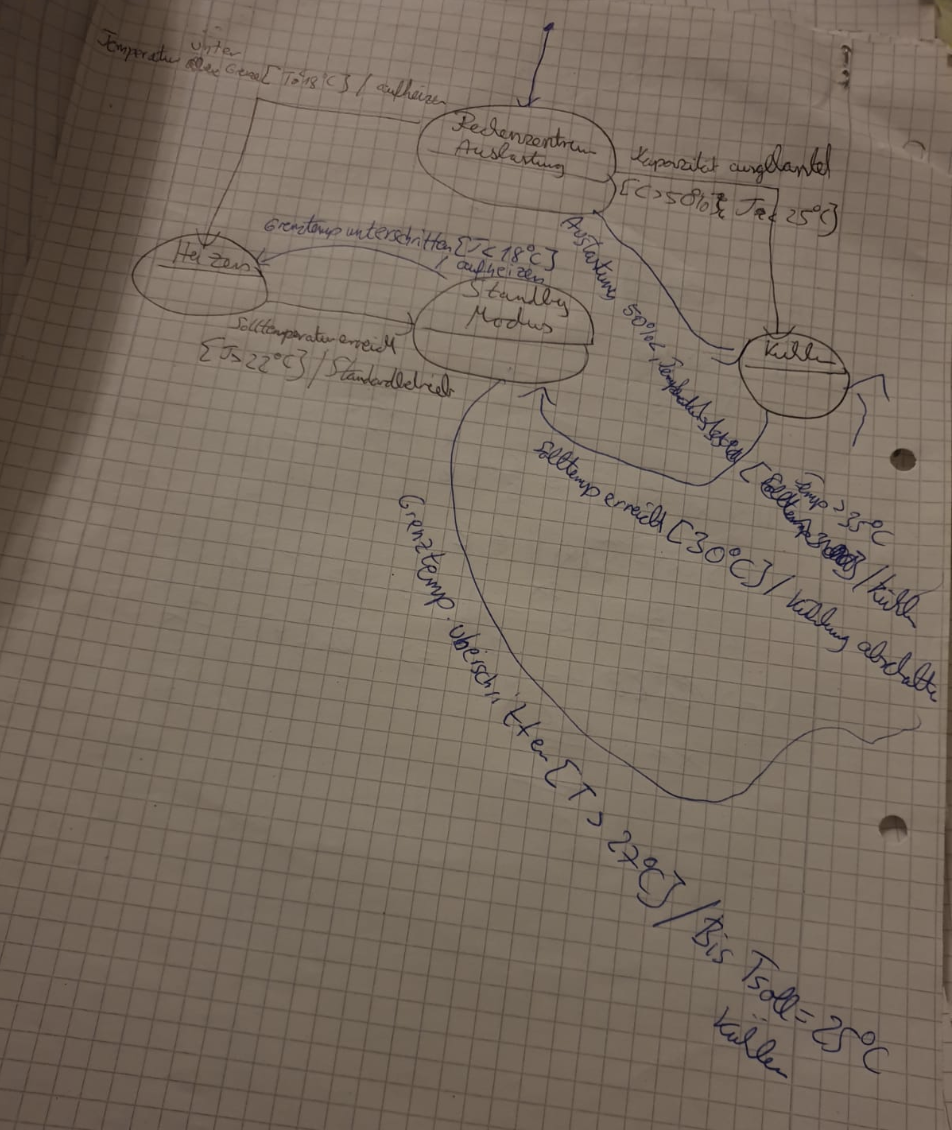 unter
Temperatur Grenze [T<18°C] / aufheizen
Rechenzentrum
Auslastung
Kapazität ausgelastet
[C>50% & T<25°C]
Grenztemp unterschritten [T<18°C]
/ aufheizen
Heizen
Standby
Modus
Solltemperatur erreicht
[T>22°C] / Standardbetrieb
Kühlen
Auslastung 50%<, [
Temp >35°C
/ Kühlen
Solltemp erreicht [30°C] / Kühlung abschalten
Grenztemp. überschritten [T > 27°C] / Bis Tsoll = 25°C
Kühlen